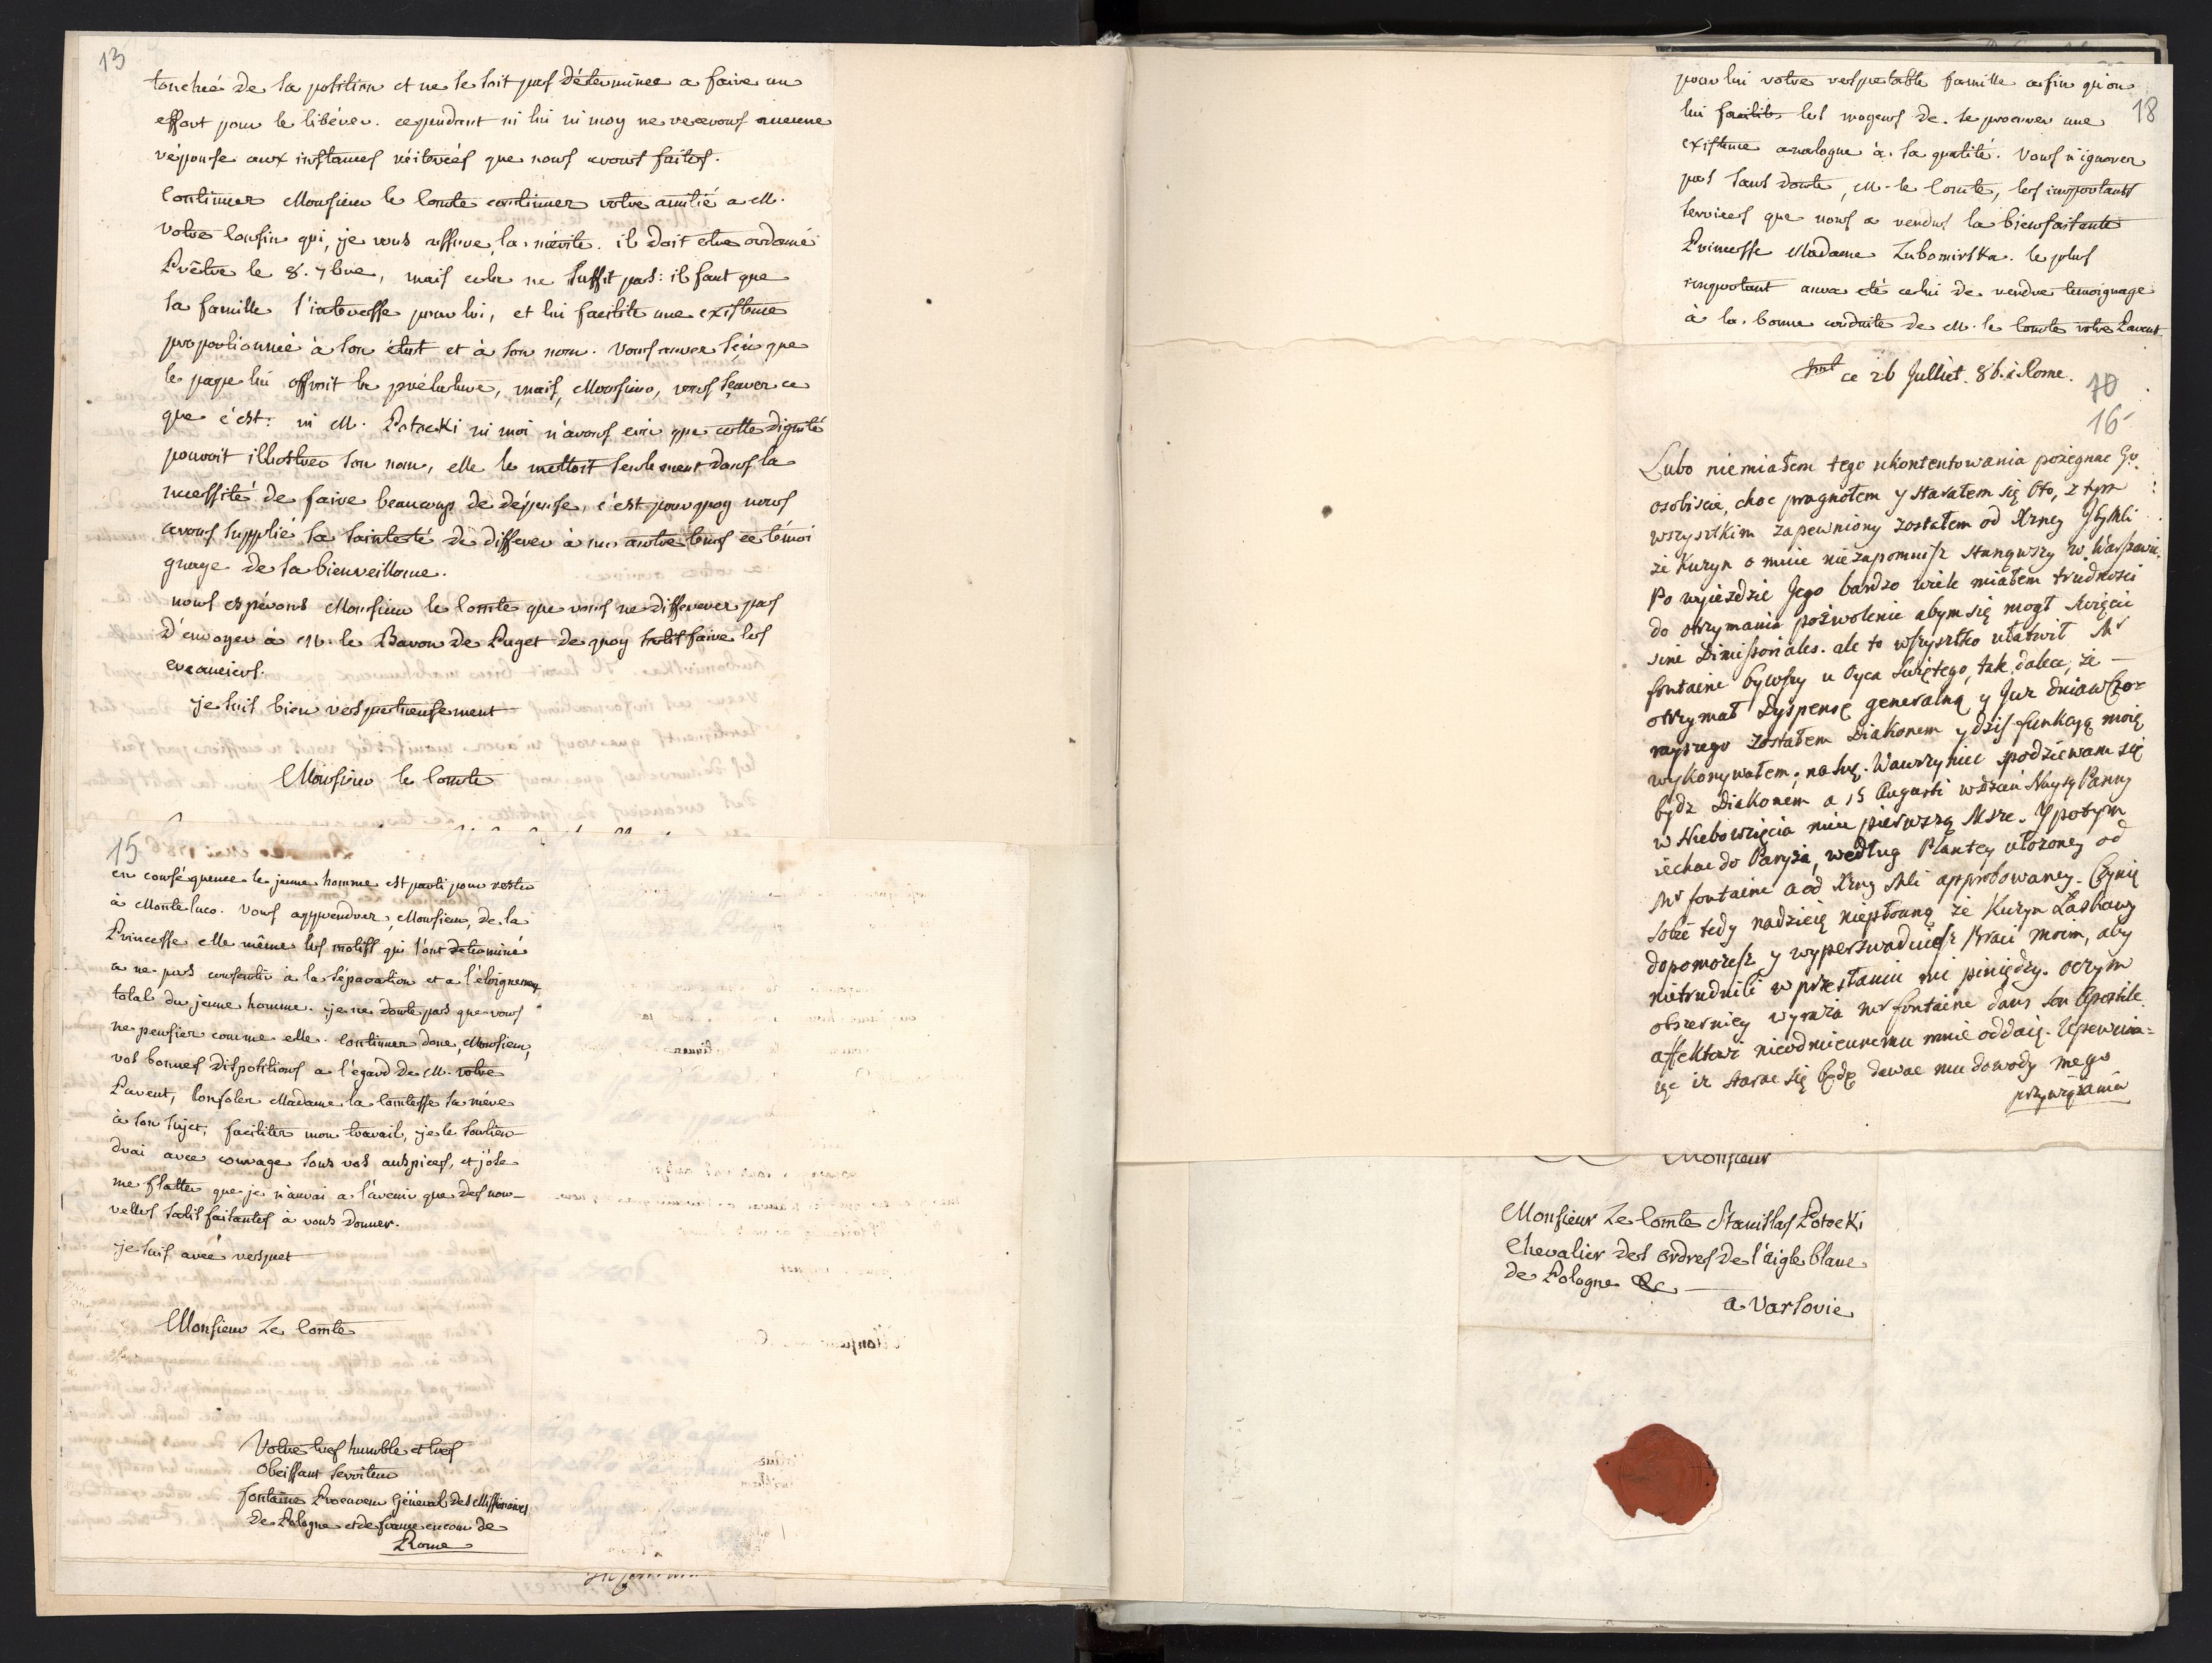 13
touchée de sa position et ne se soit pas déterminée a faire un
effort pour le libérer. cependant ni lui ni moy ne recevons aucune
réponse aux instances réiterées que nous avons faites.
Continuez Monsieur le Comte continuez votre amitié a M.
votre Cousin qui, je vous assure, la mérite. il doit etre ordonné
Prêtre le 8. 7bre, mais cela ne suffit pas: il faut que
sa famille s'interesse pour lui, et lui facilite une existence
proportionnée à son état et à son nom. Vous aurez sçu que
le pape lui offroit la prélature, mais, Monsieur, vous sçavez ce
que c'est: ni M. Potocki ni moi n'avons crû que cette dignité
pouvoit illustrer son nom, elle le mettoit seulement dans la
necessité de faire beaucoup de dépense, c'est pourquoy nous
avons supplié sa sainteté de differer à un autre tems ce témoi
gnage de sa bienveillance.
nous espérons Monsieur le Comte que vous ne differerez pas
d'envoyer à M. le Baron de Puget de quoy satisfaire les
creanciers.
je suis bien respectueusement
Monsieur le Comte
15
en conséquence le jeune homme est parti pour rester
à Monteluco. Vous apprendrez, Monsieur, de la
Princesse elle même les motifs qui l'ont determiné
a ne pas consentir à la séparation et a l'éloignement
total du jeune homme. je ne doute pas que vous
ne pensiez comme elle. Continuez donc, Monsieur,
vos bonnes dispositions a l'égard de M. votre
Parent, Consolez Madame la Comtesse sa mère
à son sujet, facilitez mon travail, je le soutien
drai avec courage sous vos auspices, et j'ose
me flatter que je n'aurai a l'avenir que des nou-
velles satisfaisantes à vous donner.
je suis avec respect
Monsieur Le Comte
Votre tres humble et tres
obeissant serviteur
fontaine Procureur Général des Missionaires
de Pologne et de france en cour de
Rome
pour lui votre respectable famille afin qu'on
18
lui facilite les moyens de se procurer une
existence analogue à sa qualité. Vous n'ignorez
pas sans doute, M. le Comte, les importants
services que nous a rendus la bienfaisante
Princesse Madame Lubomirska. le plus
important aura eté celui de rendre temoignage
à la bonne conduite de M. le Comte votre Parent
ce 26 Julliet. 86. à Rome.
70
16
Lubo niemiałem tego ukontentowania pożegnac Go
osobiscie, choc pragnołem y starałem się Oto, z tym
wszystkim zapewniony zostałem od Xzney
że Kuzyn o mnie niezapomnisz stanąwszy w Warszawie.
Po wyjezdzie Jego bardzo wiele miałem trudnosci
do otrzymania pozwolenia abym się mogł swięcic
sine Dimissoriales. ale to wszystko ułatwił Mr
fontaine bywszy u Oyca Swiętego, tak daleco, że —
otrzymał Dyspensę generalną y Juz dnia wczo-
rayszego zostałem Diakonem y dzis funkcyą moię
wykonywałem; na Sw. Wawrzyniec spodziewam się
bydz Diakonem a 15 Augusti w dzien Nayś: Panny
w Niebowzięcia mieć pierwszą Msze. Y potym
iechac do Paryża, według Planty ułożoney od
Mr fontaine a od Xzny approbowaney. Czynię
sobie tedy nadzieię niepłonną że Kuzyn Łaskawy
dopomożesz y wyperswaduiesz Braci moim, aby
nietrudnili w przesłaniu mi pieniędzy. oczym
obszerniey wyraża Mr fontaine dans son Apostile.
affektowi nieodmiennemu mnie oddaię. Upewnia=
ię iz starac się będę dawac mu dowody mego
przywiązania
Monsieur
Monsieur Le Comte Stanislas Potocki
Chevalier des ordres de l'aigle blanc
de Pologne &c —
a Varsovie